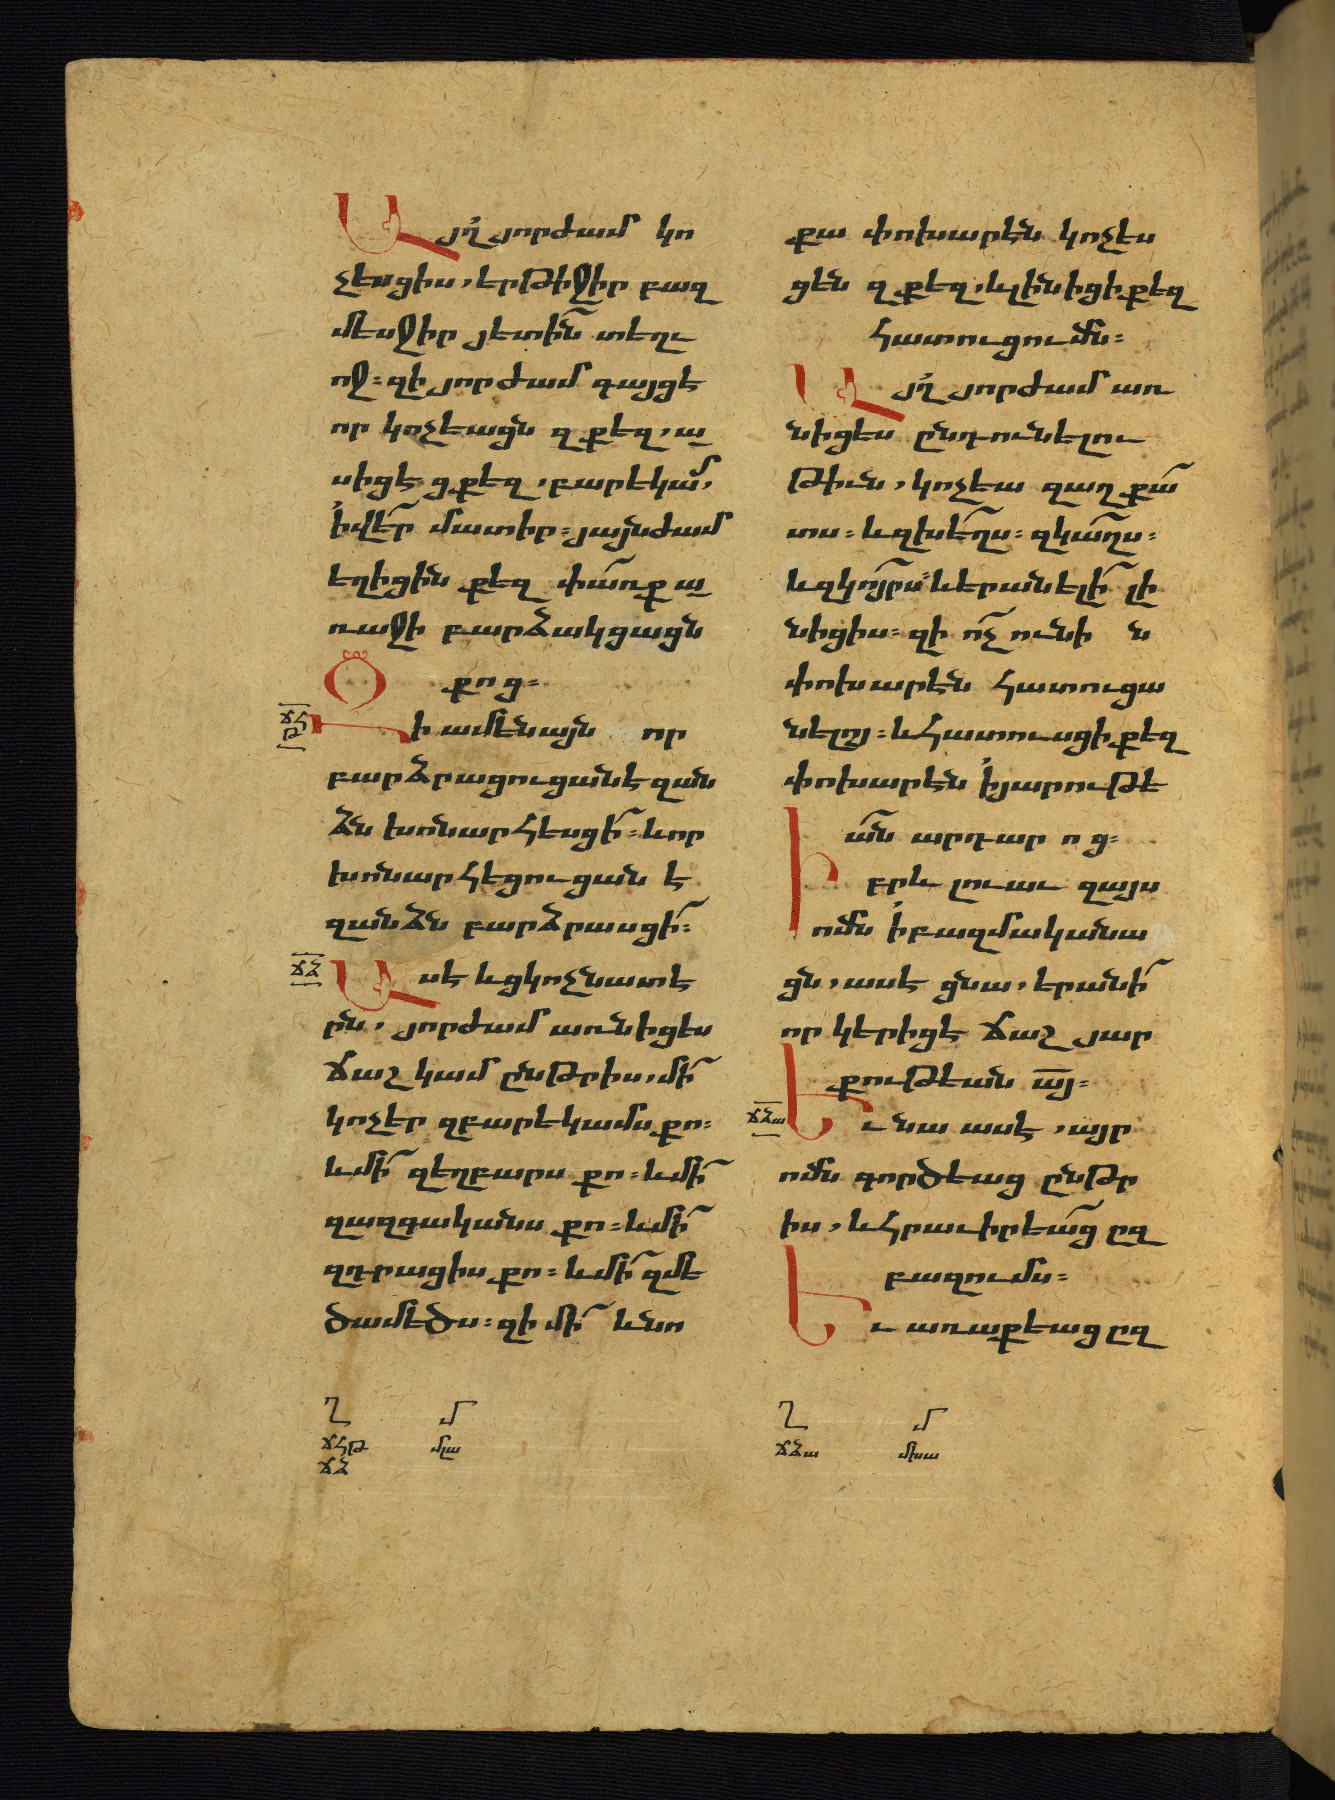 Այղ յորժամ կո
չեսցիս, երթիջիր բազ
մեսջիր յետին տեղւ
ոջ. զի յորժամ գայցէ
որ կոչեացն զքեզ, ա
սիցէ ցքեզ, բարեկամ,
ի վեր մատիր. յայնժամ
եղիցին քեզ փառք ա
ռաջի բարձակցացն
քոց.
ՃՀԹ
Զի ամենայն որ
բարձրացուցանէ զան
ձն խոնարհեսցի. և որ
խոնարհեցուցանէ
զանձն բարձրասցի.
ՃՁ
Ասէ և ցկոչնատէ
րն, յորժամ առնիցես
ճաշ կամ ընթրիս, մի
կոչեր զբարեկամս քո.
և մի զեղբարս քո. և մի
զազգականս քո. և մի
զդրացիս քո. և մի զմե
ծամեծս. զի մի և նո
Ղ Մ
ՃՀԹ ՄԼԱ
ՃՁ
քա փոխարէն կոչես
ցեն զքեզ, և լինիցի քեզ
հատուցումն.
Այղ յորժամ առ
նիցես ընդունելու
թիւն, կոչեա զաղքա
տս. և զխեղս. զկաղս.
և զկոյրս. և երանելի լի
նիցիս. զի ոչ ունին
փոխարէն հատուցա
նելոյ. և հատուսցի քեզ
փոխարէն ի յարութե
ան արդարոց.
Իբրև լուաւ զայս
ոմն ի բազմականա
ցն, ասէ ցնա, երանի
որ կերիցէ ճաշ յար
քութեան այ.
ՃՁԱ
Եւ նա ասէ, այր
ոմն գործեաց ընթր
իս, և հրաւիրեաց ըզ
բազումս.
Եւ առաքեաց ըզ
Ղ Մ
ՃՁԱ ՄԽԱ